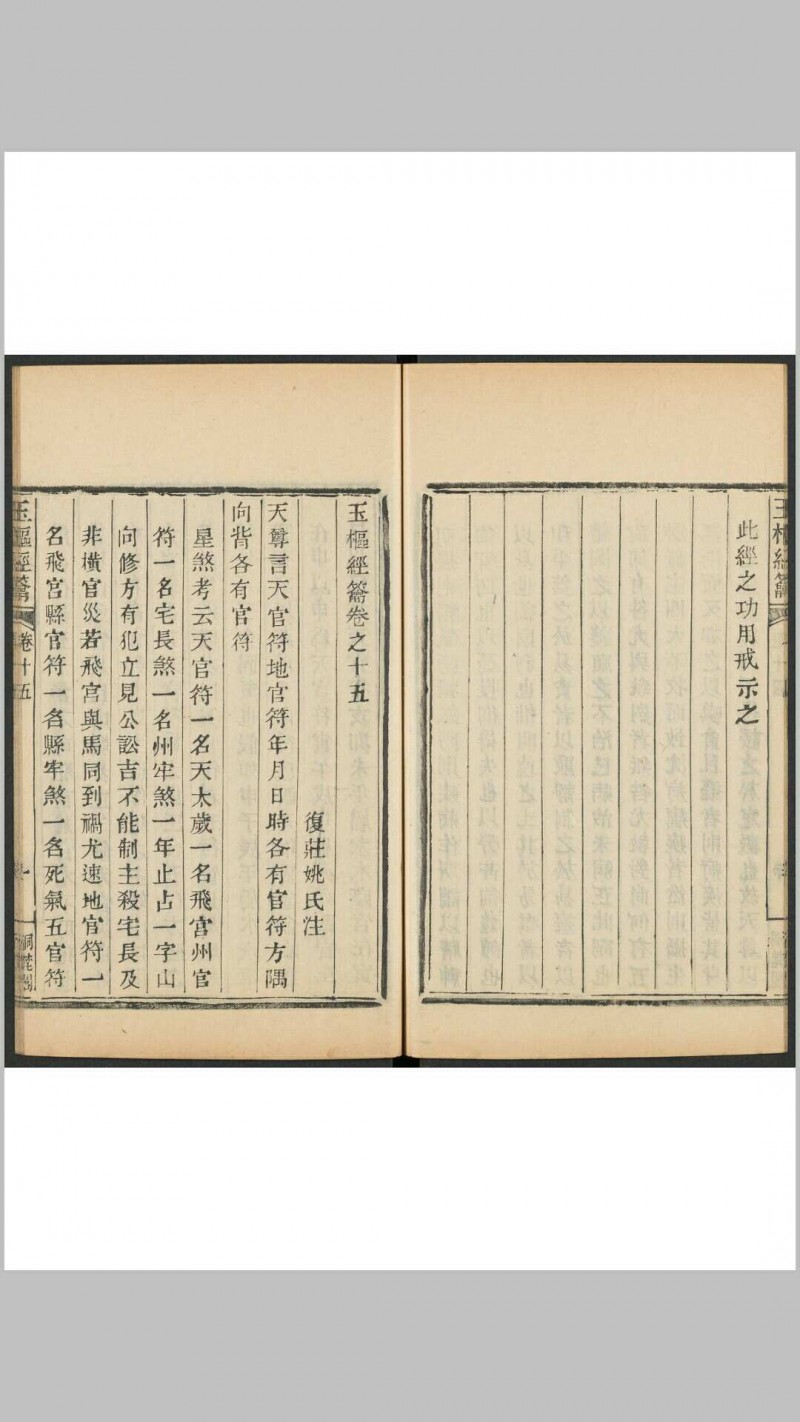 此經之功用戒示之
玉樞經籥卷之十五
復莊姚氏注
天尊言天官符地官符年月日時各有官符方隅
向背各有官符
星煞考云天官符一名天太歲一名飛宮州官
符一名宅長煞一名州牢煞一年止占一字山
向修方有犯立見公訟吉不能制主殺宅長及
非橫官災若飛宮與馬同到禍尤速地官符一
名飛宮縣官符一名縣牢煞一名死氣五官符
玉樞經籥
卷十五
一